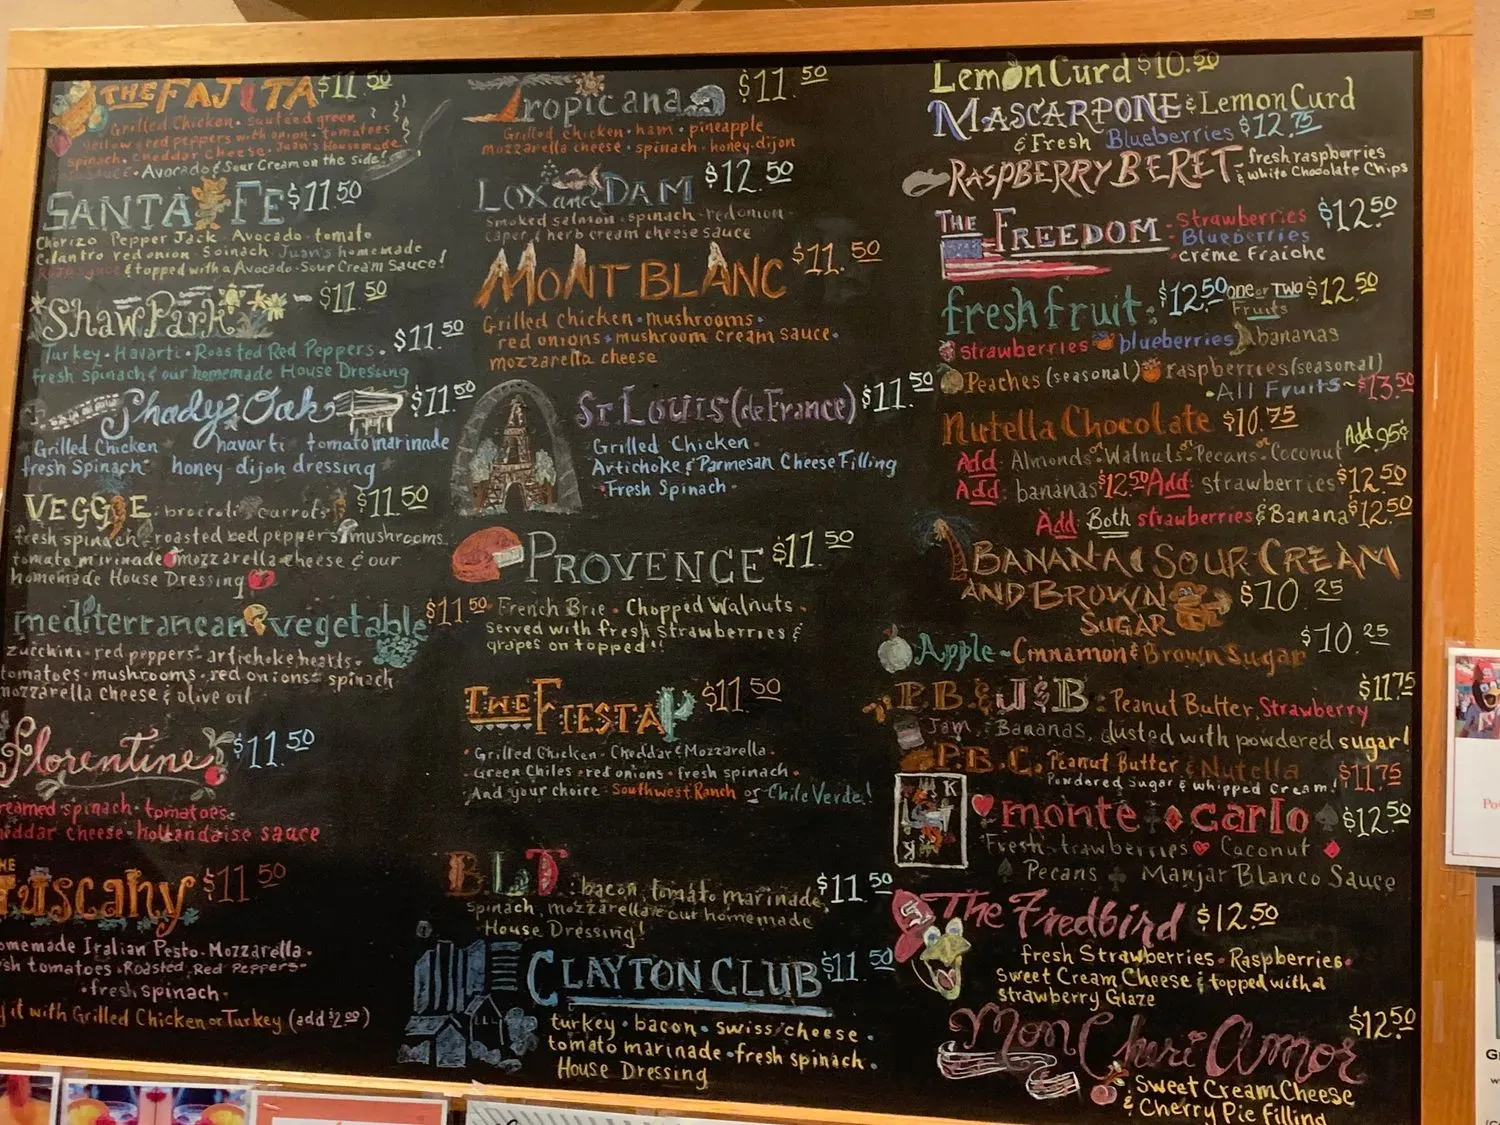 THE FAJITA $11.50
Grilled Chicken • sauteed green
yellow & red peppers with onion • tomatoes
spinach • cheddar cheese • Juan's Homemade
Sauce • Avocado & Sour Cream on the side!
SANTA FE $11.50
Chorizo Pepper Jack Avocado tomato
Cilantro red onion Spinach Juan's homemade
sauce & topped with a Avocado-Sour Cream Sauce!
Shaw Park - $11.50
Turkey • Havarti • Roasted Red Peppers • $11.50
fresh spinach & our homemade House Dressing
Shady Oak $11.50
Grilled Chicken havarti tomato marinade
fresh Spinach honey dijon dressing
VEGGIE broccoli carrots $11.50
fresh spinach roasted red peppers mushrooms
tomato marinade mozzarella cheese & our
homemade House Dressing
mediterranean vegetable $11.50
zucchini • red peppers • artichoke hearts •
tomatoes • mushrooms • red onions • spinach
mozzarella cheese & olive oil
Florentine $11.50
reamed spinach • tomatoes
heddar cheese • hollandaise sauce
HE
Tuscany $11.50
omemade Italian Pesto • Mozzarella •
sh tomatoes • Roasted Red Peppers •
• fresh spinach •
y it with Grilled Chicken or Turkey (add $2.00)
Tropicana $11.50
Grilled chicken • ham • pineapple
mozzarella cheese • spinach • honey-dijon
LOX and DAM $12.50
smoked salmon • spinach • red onion •
caper & herb cream cheese sauce
MONT BLANC $11.50
Grilled chicken • mushrooms •
red onions • mushroom cream sauce •
mozzarella cheese
St. Louis (de France) $11.50
Grilled Chicken •
Artichoke & Parmesan Cheese Filling
• Fresh Spinach •
PROVENCE $11.50
French Brie • Chopped Walnuts •
served with fresh strawberries &
grapes on topped!!
THE FIESTA $11.50
• Grilled Chicken • Cheddar & Mozzarella •
• Green Chiles • red onions • fresh spinach •
• And your choice: Southwest Ranch or Chile Verde!
B.L.T. : bacon, tomato marinade, $11.50
spinach, mozzarella & our homemade
House Dressing!
CLAYTON CLUB $11.50
turkey • bacon • swiss cheese •
tomato marinade • fresh spinach •
House Dressing
Lemon Curd $10.50
MASCARPONE & Lemon Curd
& Fresh Blueberries $12.75
RASPBERRY BERET - fresh raspberries
& white Chocolate Chips
THE FREEDOM - Strawberries $12.50
Blueberries
crème Fraiche
fresh fruit: $12.50 one or Two $12.50
Fruits
strawberries blueberries bananas
Peaches (seasonal) raspberries (seasonal)
• All Fruits ~ $13.50
Nutella Chocolate $10.75
Add: Almonds or Walnuts or Pecans or Coconut Add .95¢
Add: bananas $12.50 Add: strawberries $12.50
Add Both strawberries & Banana $12.50
BANANA & SOUR CREAM
AND BROWN $10.25
SUGAR
Apple ~ Cinnamon & Brown Sugar $10.25
P.B. & J & B : Peanut Butter, Strawberry $11.75
Jam, Bananas, dusted with powdered sugar!
P.B.C. Peanut Butter & Nutella $11.75
Powdered Sugar & whipped cream!
K
monte carlo $12.50
Fresh strawberries Coconut
Pecans Manjar Blanco Sauce
The Fredbird $12.50
fresh Strawberries • Raspberries •
Sweet Cream Cheese & topped with a
strawberry Glaze
Mon Cheri Amor $12.50
Sweet Cream Cheese
& Cherry Pie Filling